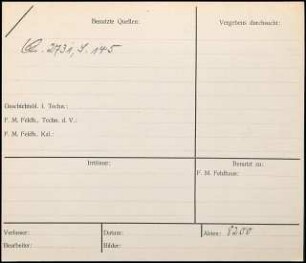 Benutzte Quellen:
Vergebens durchsucht:
Qu. 2731, S. 145
Geschichtsbl. f. Techn.:
F. M. Feldh., Techn. d. V.:
F. M. Feldh., Kal.:
Irrtümer:
Benutzt zu:
F. M. Feldhaus:
Verfasser:
Datum:
Akten: 8200
Bearbeiter:
Bilder: